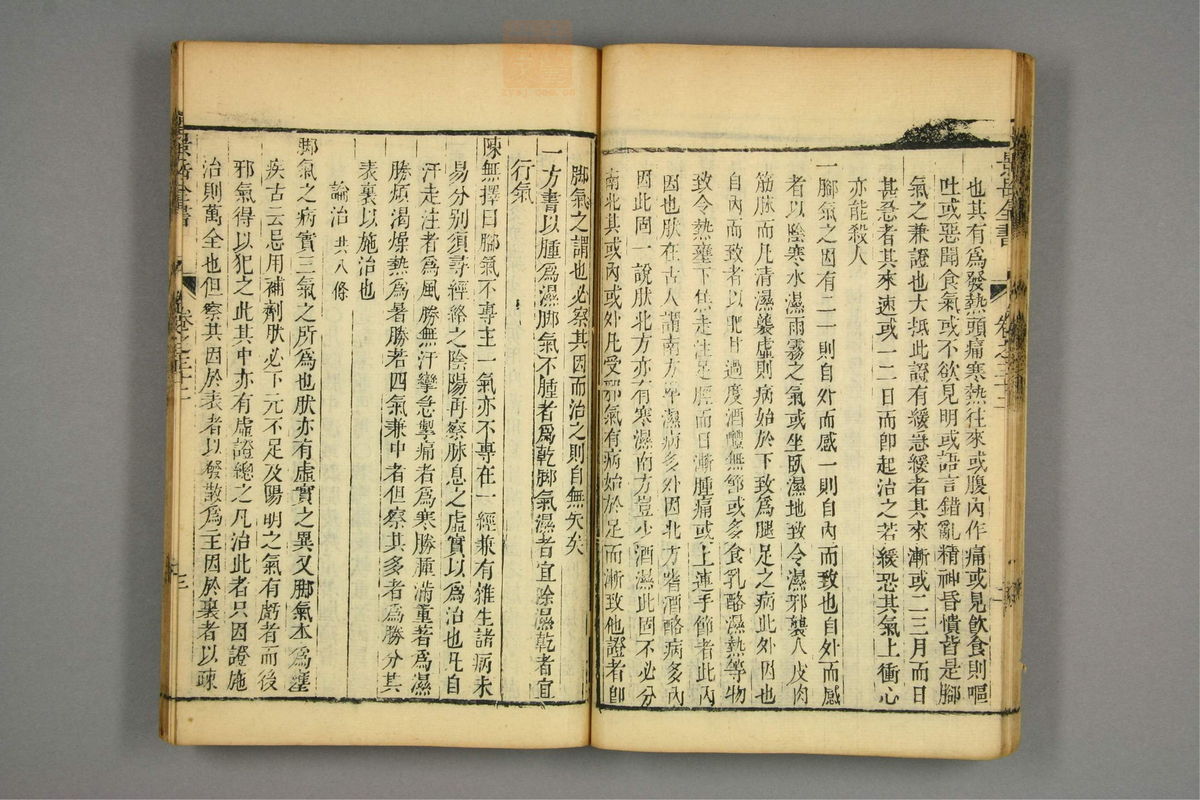 景岳全書
卷之三十二
也其有爲發熱頭痛寒熱往來或腹內作痛或見飲食則嘔
吐或惡聞食氣或不欲見明或語言錯亂精神昏憒皆是腳
氣之兼證也大抵此證有緩急緩者其來漸或二三月而日
甚急者其來速或一二日而卽起治之若緩恐其氣上衝心
亦能殺人
一腳氣之因有二一則自外而感一則自內而致也自外而感
者以陰寒水濕雨霧之氣或坐臥濕地致令濕邪襲人皮肉
筋脉而凡清濕襲虛則病始於下致爲腿足之病此外因也
自內而致者以肥甘過度酒醴無節或多食乳酪濕熱等物
致令熱壅下焦走注足脛而日漸腫痛或上連手節者此內
因也狀在古人謂南方卑濕病多外因北方嗜酒酪病多內
因此固一說狀北方亦有寒濕南方豈少酒濕此固不必分
南北其或內或外凡受邪氣有病始於足而漸致他證者卽
脚氣之謂也必察其因而治之則自無失矣
一方書以腫爲濕脚氣不腫者爲乾脚氣濕者宜除濕乾者宜
行氣
陳無擇曰腳氣不專主一氣亦不專在一經兼有雜生諸病未
易分別須尋經絡之陰陽再察脉息之虛實以爲治也凡自
汗走注者爲風勝無汗攣急掣痛者爲寒勝腫滿重著爲濕
勝煩渴燥熱爲暑勝若四氣兼中者但察其多者爲勝分其
表裏以施治也
論治 共八條
脚氣之病實三氣之所爲也狀亦有虛實之異又脚氣本爲壅
疾古云忌用補劑狀必下元不足及陽明之氣有虧者而後
邪氣得以犯之此其中亦有虛證總之凡治此者只因證施
治則萬全也但察其因於表者以發散爲主因於裏者以疎
景岳全書
卷之三十二
三